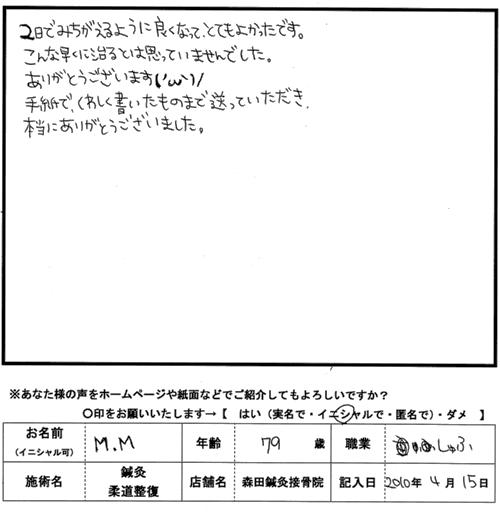 2日でみちがえるように良くなって、とてもよかったです。
こんな早くに治るとは思っていませんでした。
ありがとうございます(´ω`)/
手紙で、くわしく書いたものまで送っていただき、
本当にありがとうございました。
※あなた様の声をホームページや紙面などでご紹介してもよろしいですか？
〇印をお願いいたします→【 はい（実名で・イニシャルで・匿名で）・ダメ 】
お名前 M.M 年齢 79 歳 職業 しゅふ
（イニシャル可）
施術名 鍼灸 柔道整復 店舗名 森田鍼灸接骨院 記入日 2010年 4月 15日